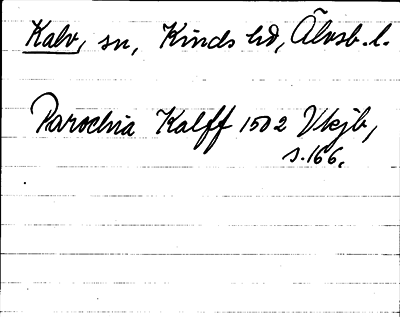 Kalv, sn, Kinds hd, Älvsb. l.
Parochia Kalff 1502 Vkjb,
s. 166.